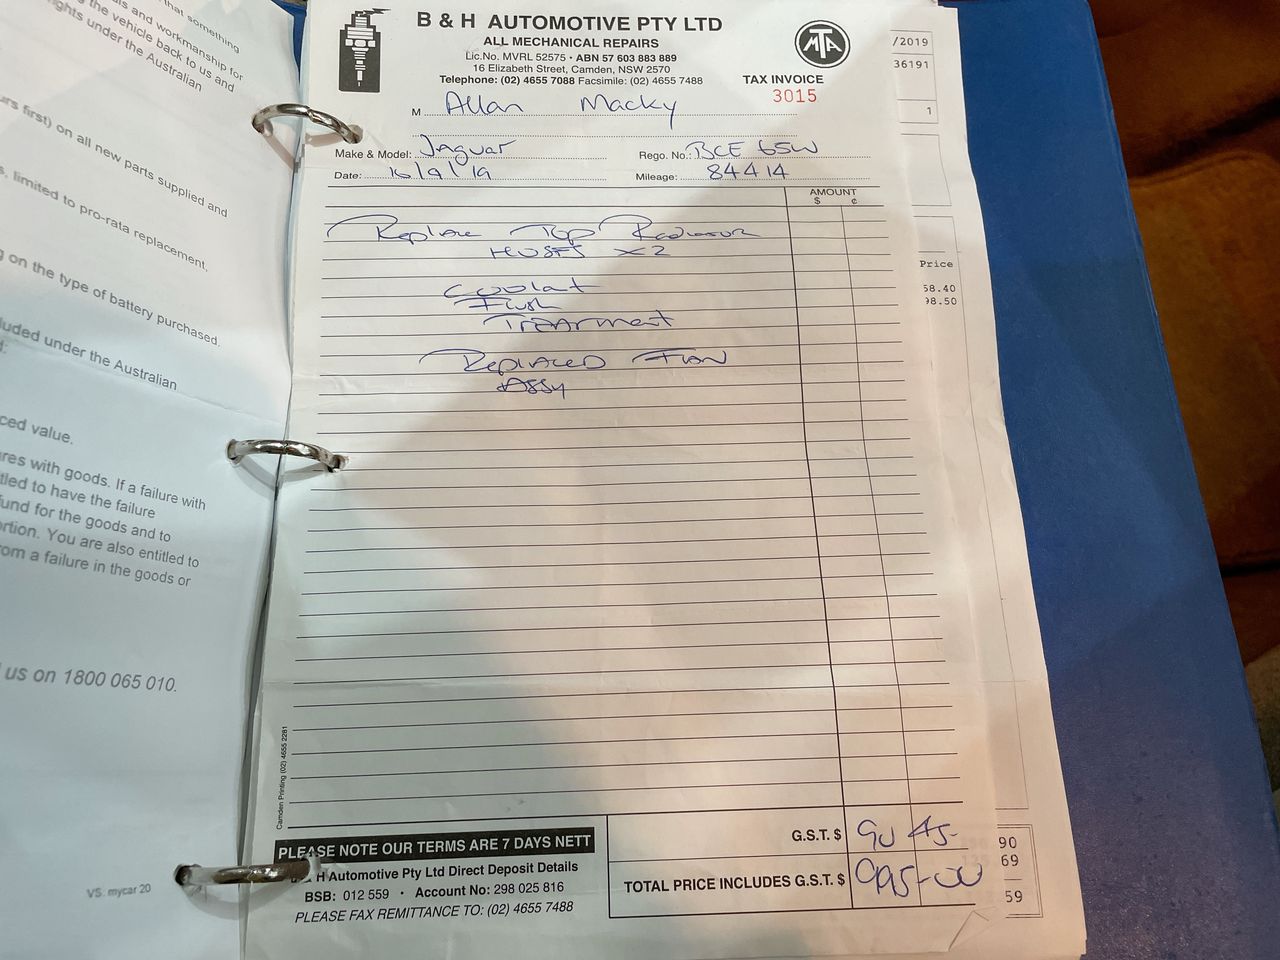 that something
and workmanship for
the vehicle back to us and
rights under the Australian
first) on all new parts supplied and
limited to pro-rata replacement.
on the type of battery purchased.
under the Australian
value.
with goods. If a failure with
to have the failure
for the goods and to
You are also entitled to
from a failure in the goods or
us on 1800 065 010.
VS: mycar 20
B & H AUTOMOTIVE PTY LTD
ALL MECHANICAL REPAIRS
Lic.No. MVRL 52575 • ABN 57 603 883 889
16 Elizabeth Street, Camden, NSW 2570
Telephone: (02) 4655 7088 Facsimile: (02) 4655 7488
MTA
TAX INVOICE
3015
M Allan Macky
Make & Model: Jaguar Rego. No.: BCE 65W
Date: 16/9/19 Mileage: 84414
AMOUNT
$ ¢
Replace Top Radiator
HOSES x2
Coolant
Flush
Treatment
Replaced
Assy
Camden Printing (02) 4655 2281
PLEASE NOTE OUR TERMS ARE 7 DAYS NETT
& H Automotive Pty Ltd Direct Deposit Details
BSB: 012 559 • Account No: 298 025 816
PLEASE FAX REMITTANCE TO: (02) 4655 7488
G.S.T. $ 90 45
TOTAL PRICE INCLUDES G.S.T. $ 995-00
/2019
36191
1
Price
58.40
98.50
90
69
59